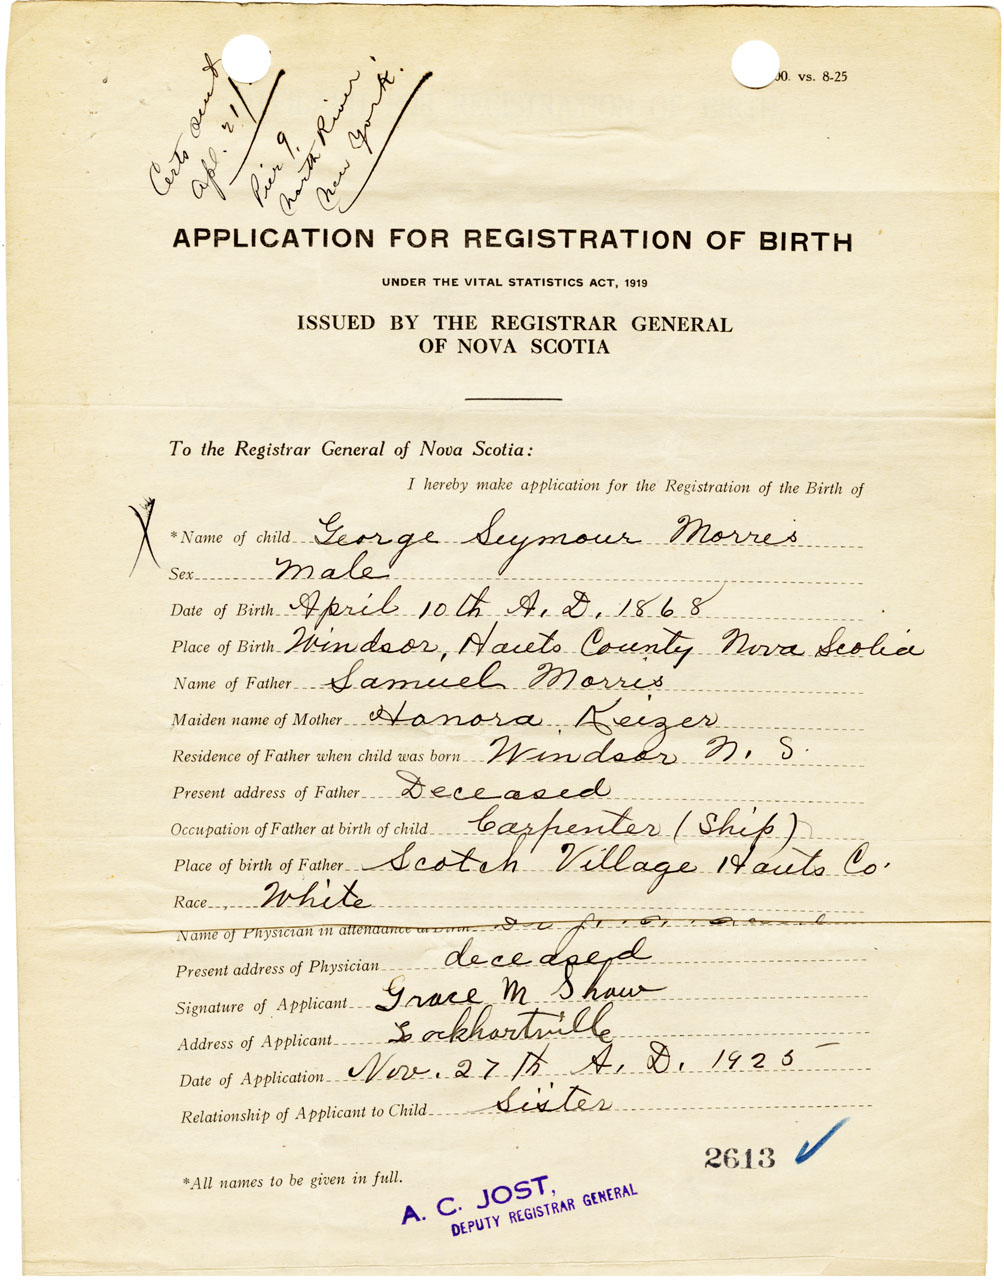 Certs sent
Apl. 21/
Pier 9,
North River,
New York.
00. vs. 8-25
APPLICATION FOR REGISTRATION OF BIRTH
UNDER THE VITAL STATISTICS ACT, 1919
ISSUED BY THE REGISTRAR GENERAL
OF NOVA SCOTIA
To the Registrar General of Nova Scotia:
I hereby make application for the Registration of the Birth of
*Name of child George Seymour Morris
Sex Male
Date of Birth April 10th A. D. 1868
Place of Birth Windsor, Hants County Nova Scotia
Name of Father Samuel Morris
Maiden name of Mother Honora Keizer
Residence of Father when child was born Windsor N. S.
Present address of Father Deceased
Occupation of Father at birth of child Carpenter (Ship)
Place of birth of Father Scotch Village Hants Co.
Race White
Name of Physician in attendance
Present address of Physician deceased
Signature of Applicant Grace M Shaw
Address of Applicant Lockhartville
Date of Application Nov. 27th A. D. 1925
Relationship of Applicant to Child Sister
2613
*All names to be given in full.
A. C. JOST,
DEPUTY REGISTRAR GENERAL